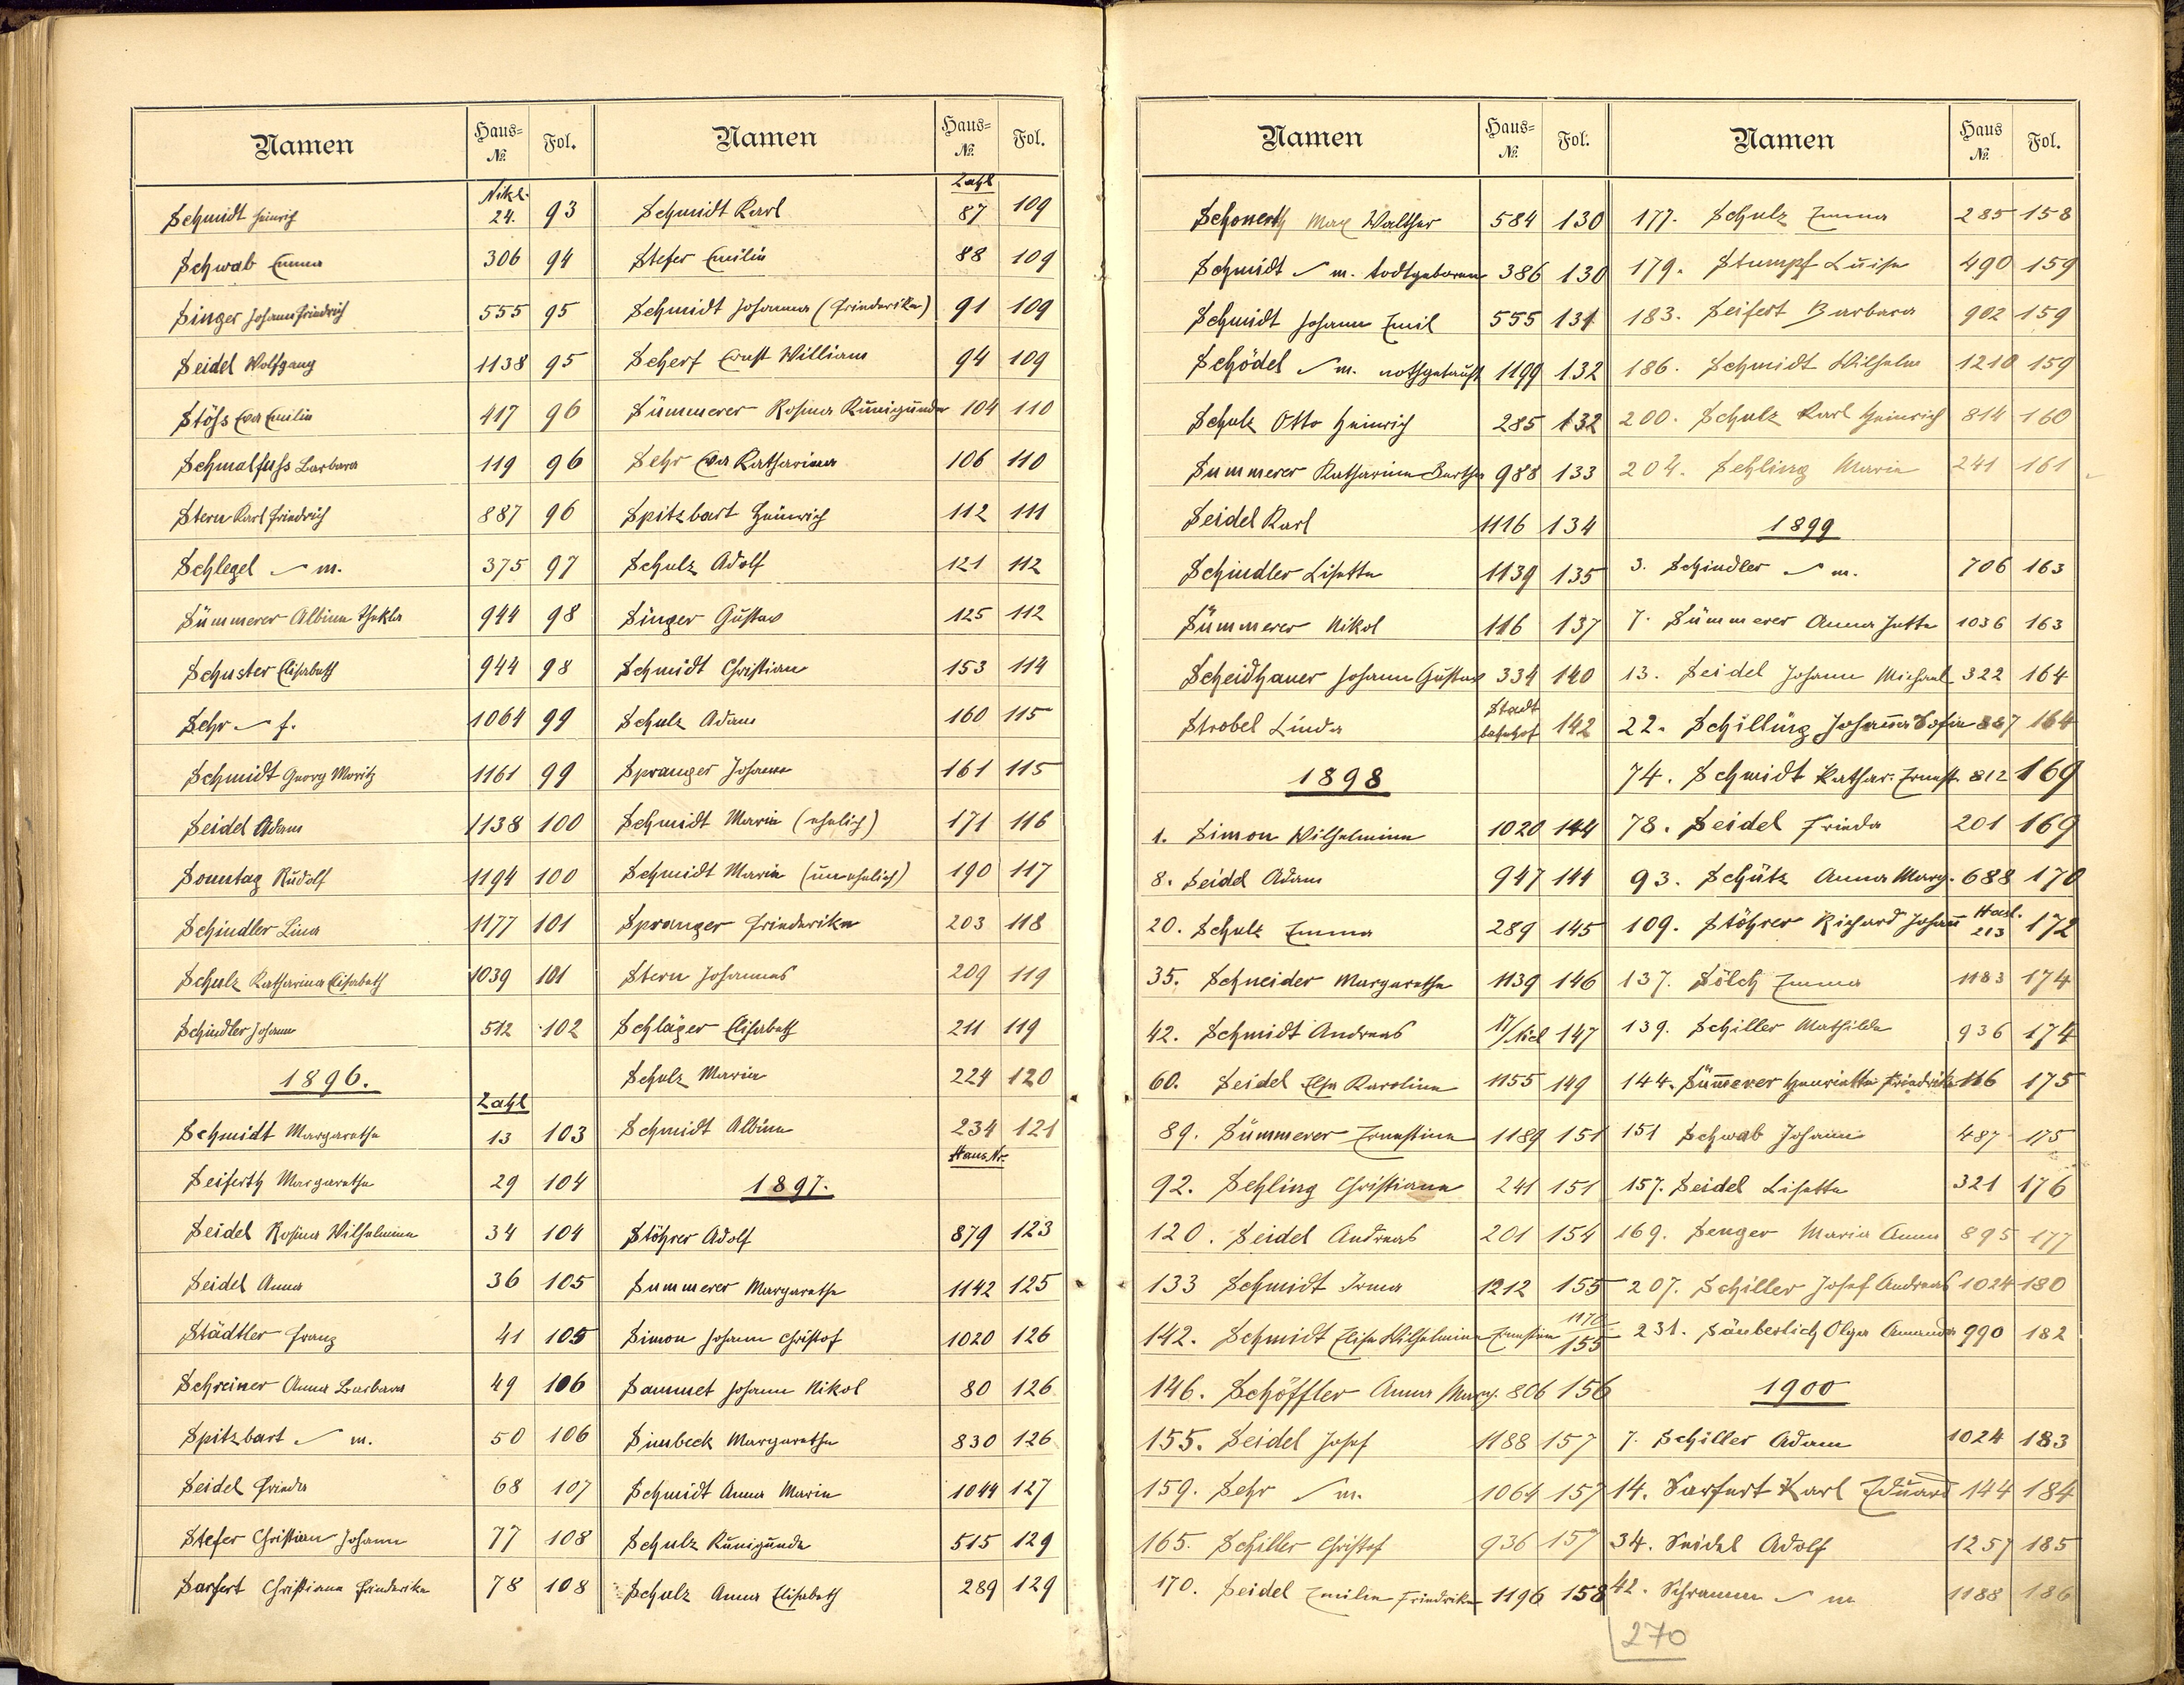 Namen Haus- Nº. Fol.
Nikl.
Schmidt Heinrich 24. 93
Schwab Emma 306 94
Singer Johann Friedrich 555 95
Seidel Wolfgang 1138 95
Stöss Eva Emilie 417 96
Schmalfuss Barbara 119 96
Stern Karl Friedrich 887 96
Schlegel m. 375 97
Sümmerer Albine Thekla 944 98
Schuster Elisabeth 944 98
Sehr f. 1064 99
Schmidt Georg Moritz 1161 99
Seidel Adam 1138 100
Sonntag Rudolf 1194 100
Schindler Lina 1177 101
Schulz Katharina Elisabeth 1039 101
Schindler Johann 512 102
1896.
Zahl
Schmidt Margarethe 13 103
Seiferth Margaretha 29 104
Seidel Rosina Wilhelmine 34 104
Seidel Anna 36 105
Städtler Franz 41 105
Schreiner Anna Barbara 49 106
Spitzbart m. 50 106
Seidel Frieda 68 107
Stefer Christian Johann 77 108
Sarfert Christiane Friederike 78 108
Namen Haus- Nº. Fol.
Zahl
Schmidt Karl 87 109
Stefer Emilie 88 109
Schmidt Johanna (Friederike) 91 109
Scherf Ernst William 94 109
Sümmerer Rosina Kunigunde 104 110
Sehr Eva Katharina 106 110
Spitzbart Heinrich 112 111
Schulz Adolf 121 112
Singer Gustav 125 112
Schmidt Christian 153 114
Schulz Adam 160 115
Spranger Johann 161 115
Schmidt Maria (ehelich) 171 116
Schmidt Maria (unehelich) 190 117
Spranger Friederike 203 118
Stern Johannes 209 119
Schläger Elisabeth 211 119
Schulz Maria 224 120
Schmidt Albine 234 121
Haus Nr.
1897.
Stöhrer Adolf 879 123
Summerer Margarethe 1142 125
Simon Johann Christof 1020 126
Sammet Johann Nikol 80 126
Simbeck Margarethe 830 126
Schmidt Anna Maria 1044 127
Schulz Kunigunde 515 129
Schulz Anna Elisabeth 289 129
Namen Haus- Nº. Fol.
Schonerth Max Walther 584 130
Schmidt m. todtgeboren 386 130
Schmidt Johann Emil 555 131
Schödel m. nothgetauft 1199 132
Schulz Otto Heinrich 285 132
Summerer Katharina Bertha 988 133
Seidel Karl 1116 134
Schindler Lisette 1139 135
Sümmerer Nikol 116 137
Scheidhauer Johann Gustav 334 140
Strobel Linda Stadt bahnhof 142
1898
1. Simon Wilhelmine 1020 144
8. Seidel Adam 947 144
20. Schulz Emma 289 145
35. Schneider Margarethe 1139 146
42. Schmidt Andreas 17/Nicl 147
60. Seidel Elsa Karoline 1155 149
89. Sümmerer Ernestine 1189 151
92. Sehling Christiane 241 151
120. Seidel Andreas 201 154
133 Schmidt Irma 1212 155
142. Schmidt Elise Wilhelmine Ernestine 1170 155
146. Schöffler Anna Marg. 806 156
155. Seidel Josef 1188 157
159. Sehr m. 1064 157
165. Schiller Christof 936 157
170. Seidel Emilie Friedrike 1196 158
Namen Haus Nº. Fol.
177. Schulz Emma 285 158
179. Stumpf Luise 490 159
183. Seifert Barbara 902 159
186. Schmidt Wilhelm 1210 159
200. Schulz Karl Heinrich 814 160
204. Sehling Maria 241 161
1899
3. Schindler m. 706 163
7. Sümmerer Anna Jutta 1036 163
13. Seidel Johann Michael 322 164
22. Schilling Johanna Sofie 867 164
74. Schmidt Kathar. Ernest. 812 169
78. Seidel Frieda 201 169
93. Schütz Anna Marg. 688 170
109. Stöhrer Richard Johann Hasl. 213 172
137. Sölch Emma 1183 174
139. Schiller Mathilde 936 174
144. Sümerer Henriette Friedrike 116 175
151 Schwab Johann 487 175
157. Seidel Lisette 321 176
169. Senger Maria Anna 895 177
207. Schiller Josef Andreas 1024 180
231. Säuberlich Olga Amanda 990 182
1900
7. Schiller Adam 1024 183
14. Sarfert Karl Eduard 144 184
34. Seidel Adolf 1257 185
42. Schramm m 1188 186
270